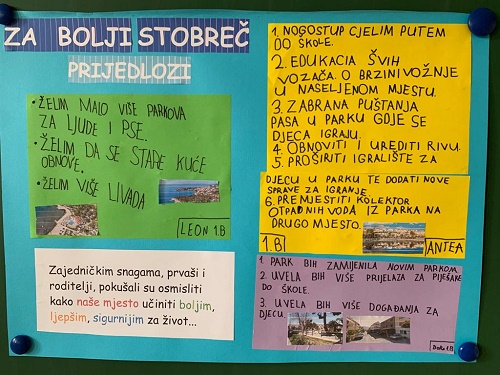 ZA BOLJI STOBREČ
PRIJEDLOZI
• ŽELIM MALO VIŠE PARKOVA
ZA LJUDE I PSE.
• ŽELIM DA SE STARE KUĆE
OBNOVE.
• ŽELIM VIŠE LIVADA
LEON 1.B
Zajedničkim snagama, prvaši i
roditelji, pokušali su osmisliti
kako naše mjesto učiniti boljim,
ljepšim, sigurnijim za život...
1. NOGOSTUP CJELIM PUTEM
DO ŠKOLE.
2. EDUKACIA ŠVIH
VOZAČA O BRZINI VOŽNJE
U NASELJENOM MJESTU.
3. ZABRANA PUŠTANJA
PASA U PARKU GDJE SE
DJECA IGRAJU.
4. OBNOVITI I UREDITI RIVU.
5. PROŠIRITI IGRALIŠTE ZA
DJECU U PARKU TE DODATI NOVE
SPRAVE ZA IGRANJE.
6. PREMJESTITI KOLEKTOR
OTPADNIH VODA IZ PARKA NA
DRUGO MJESTO.
1.B
ANTEA
1. PARK BIH ZAMIJENILA NOVIM PARKOM.
2. UVELA BIH VIŠE PRIJELAZA ZA PJEŠAKE
DO ŠKOLE.
3. UVELA BIH VIŠE DOGAĐANJA ZA
DJECU.